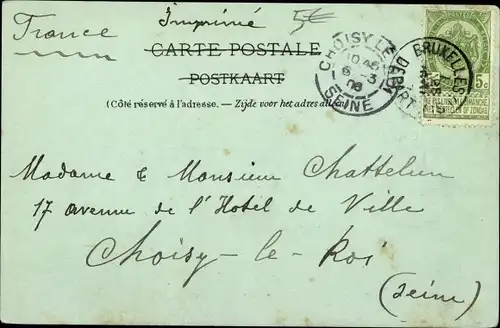 France
Imprimé
5€
CARTE POSTALE
POSTKAART
(Côté réservé à l'adresse. — Zijde voor het adres
CHOISY LE
6-3
06
SEINE
BRUXELLES
DEPART
5c
Madame & Monsieur Chattelun
17 avenue de l'Hotel de Ville
Choisy-le-Roi
(Seine)